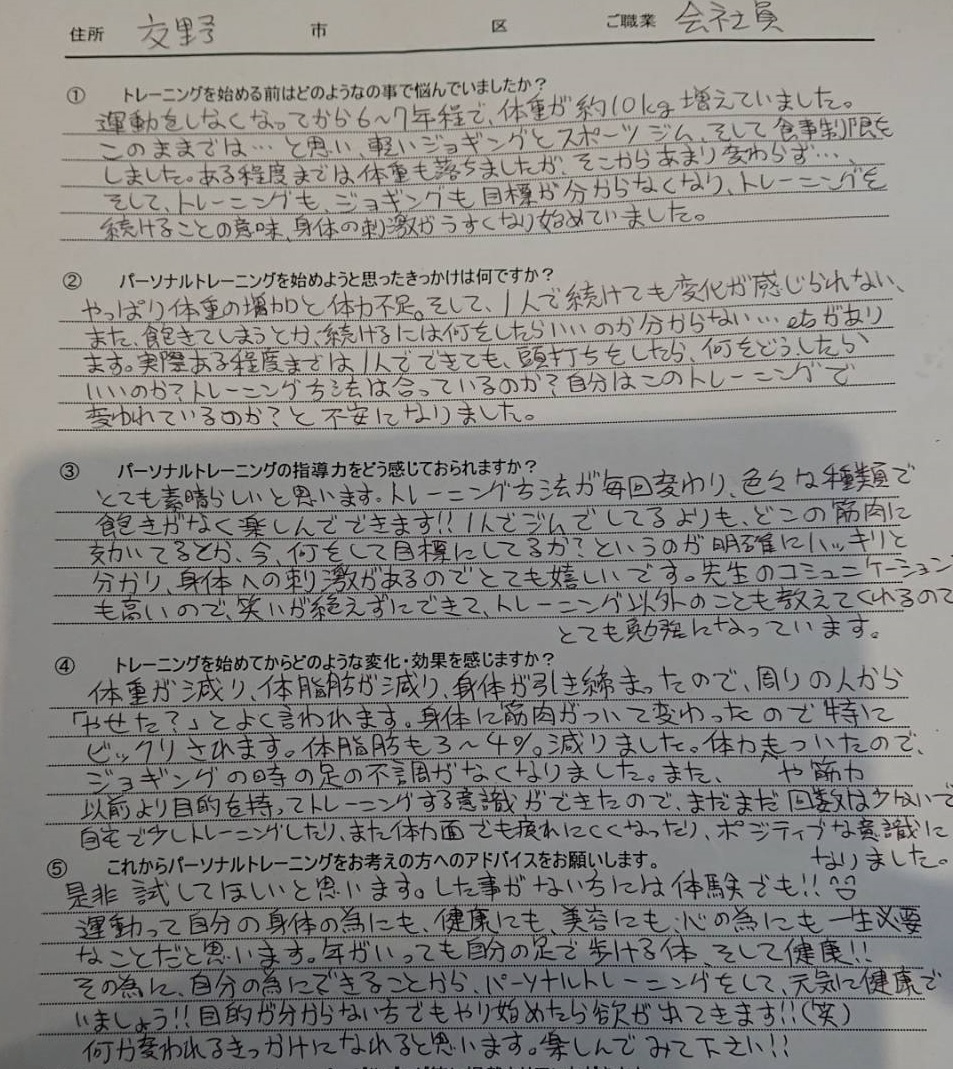 住所 交野 市 区 ご職業 会社員
① トレーニングを始める前はどのようなの事で悩んでいましたか？
運動をしなくなってから6〜7年程で、体重が約10kg増えていました。
このままでは…と思い、軽いジョギングとスポーツジム、そして食事制限を
しました。ある程度までは体重も落ちましたが、そこからあまり変わらず…、
そして、トレーニングも、ジョギングも目標が分からなくなり、トレーニングを
続けることの意味、身体の刺激がうすくなり始めていました。
② パーソナルトレーニングを始めようと思ったきっかけは何ですか？
やっぱり体重の増加と体力不足。そして、1人で続けても変化が感じられない、
また、飽きてしまうとか、続けるには何をしたらいいのか分からない…etcがあり
ます。実際ある程度までは1人でできても、頭打ちをしたら、何をどうしたら
いいのか？トレーニング方法は合っているのか？自分はこのトレーニングで
変われているのか？と不安になりました。
③ パーソナルトレーニングの指導力をどう感じておられますか？
とても素晴らしいと思います。トレーニング方法が毎回変わり、色々な種類で
飽きがなく楽しんでできます!!1人でジムでしてるよりも、どこの筋肉に
効いてるとか、今、何をして目標にしてるか？というのが明確にハッキリと
分かり、身体への刺激があるのでとても嬉しいです。先生のコミュニケーション
も高いので、笑いが絶えずにできて、トレーニング以外のことも教えてくれるので
とても勉強になっています。
④ トレーニングを始めてからどのような変化・効果を感じますか？
体重が減り、体脂肪が減り、身体が引き締まったので、周りの人から
「やせた？」とよく言われます。身体に筋肉がついて変わったので特に
ビックリされます。体脂肪も3〜4%。減りました。体力もついたので、
ジョギングの時の足の不調がなくなりました。また、 や筋力
以前より目的を持ってトレーニングする意識ができたので、まだまだ回数は少ないで
自宅で少しトレーニングしたり、また体力面でも疲れにくくなったり、ポジティブな意識に
なりました。
⑤ これからパーソナルトレーニングをお考えの方へのアドバイスをお願いします。
是非試してほしいと思います。した事がない方には体験でも!!
運動って自分の身体の為にも、健康にも、美容にも、心の為にも一生必要
なことだと思います。年がいっても自分の足で歩ける体、そして健康!!
その為に、自分の為にできることから、パーソナルトレーニングをして、元気に健康で
いましょう!!目的が分からない方でもやり始めたら欲が出てきます!!(笑)
何か変われるきっかけになれると思います。楽しんでみて下さい!!